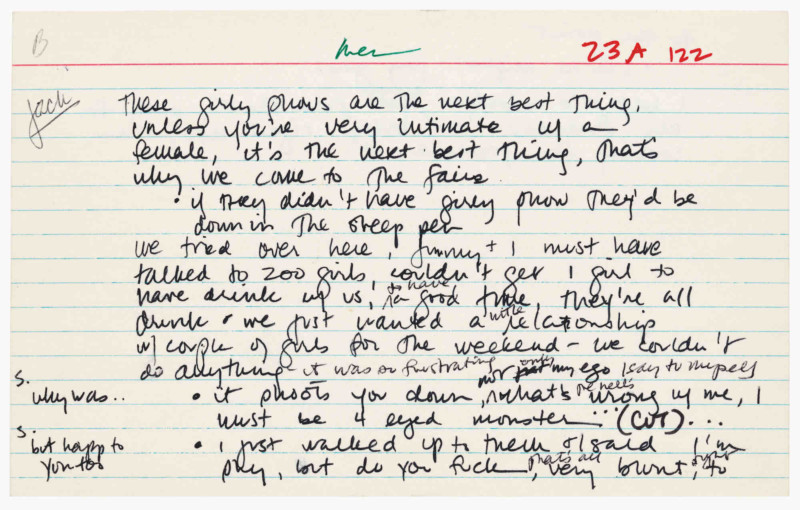 B
Men
23A 122
Jack
These girly shows are the next best thing,
unless you're very intimate w/ a
female, it's the next best thing, thats
why we come to the fairs.
• if they didn't have girly show they'd be
down in the sheep pen
we tried over here, Jimmy + I must have
talked to 200 girls, couldn't get 1 girl to
have drink w/ us, to have a good time, they're all
drunk • we just wanted a little relationship
w/ couple of girls for the weekend - we couldn't
do anything - it was so frustrating
not only my ego I say to myself
S. why was.. • it shoots you down, what's the hells wrong w/ me, I
must be 4 eyed monster... (cut) ...
S. but happ to you too • I just walked up to them & I said I'm
shy, but do you fuck, thats all very blunt, right to